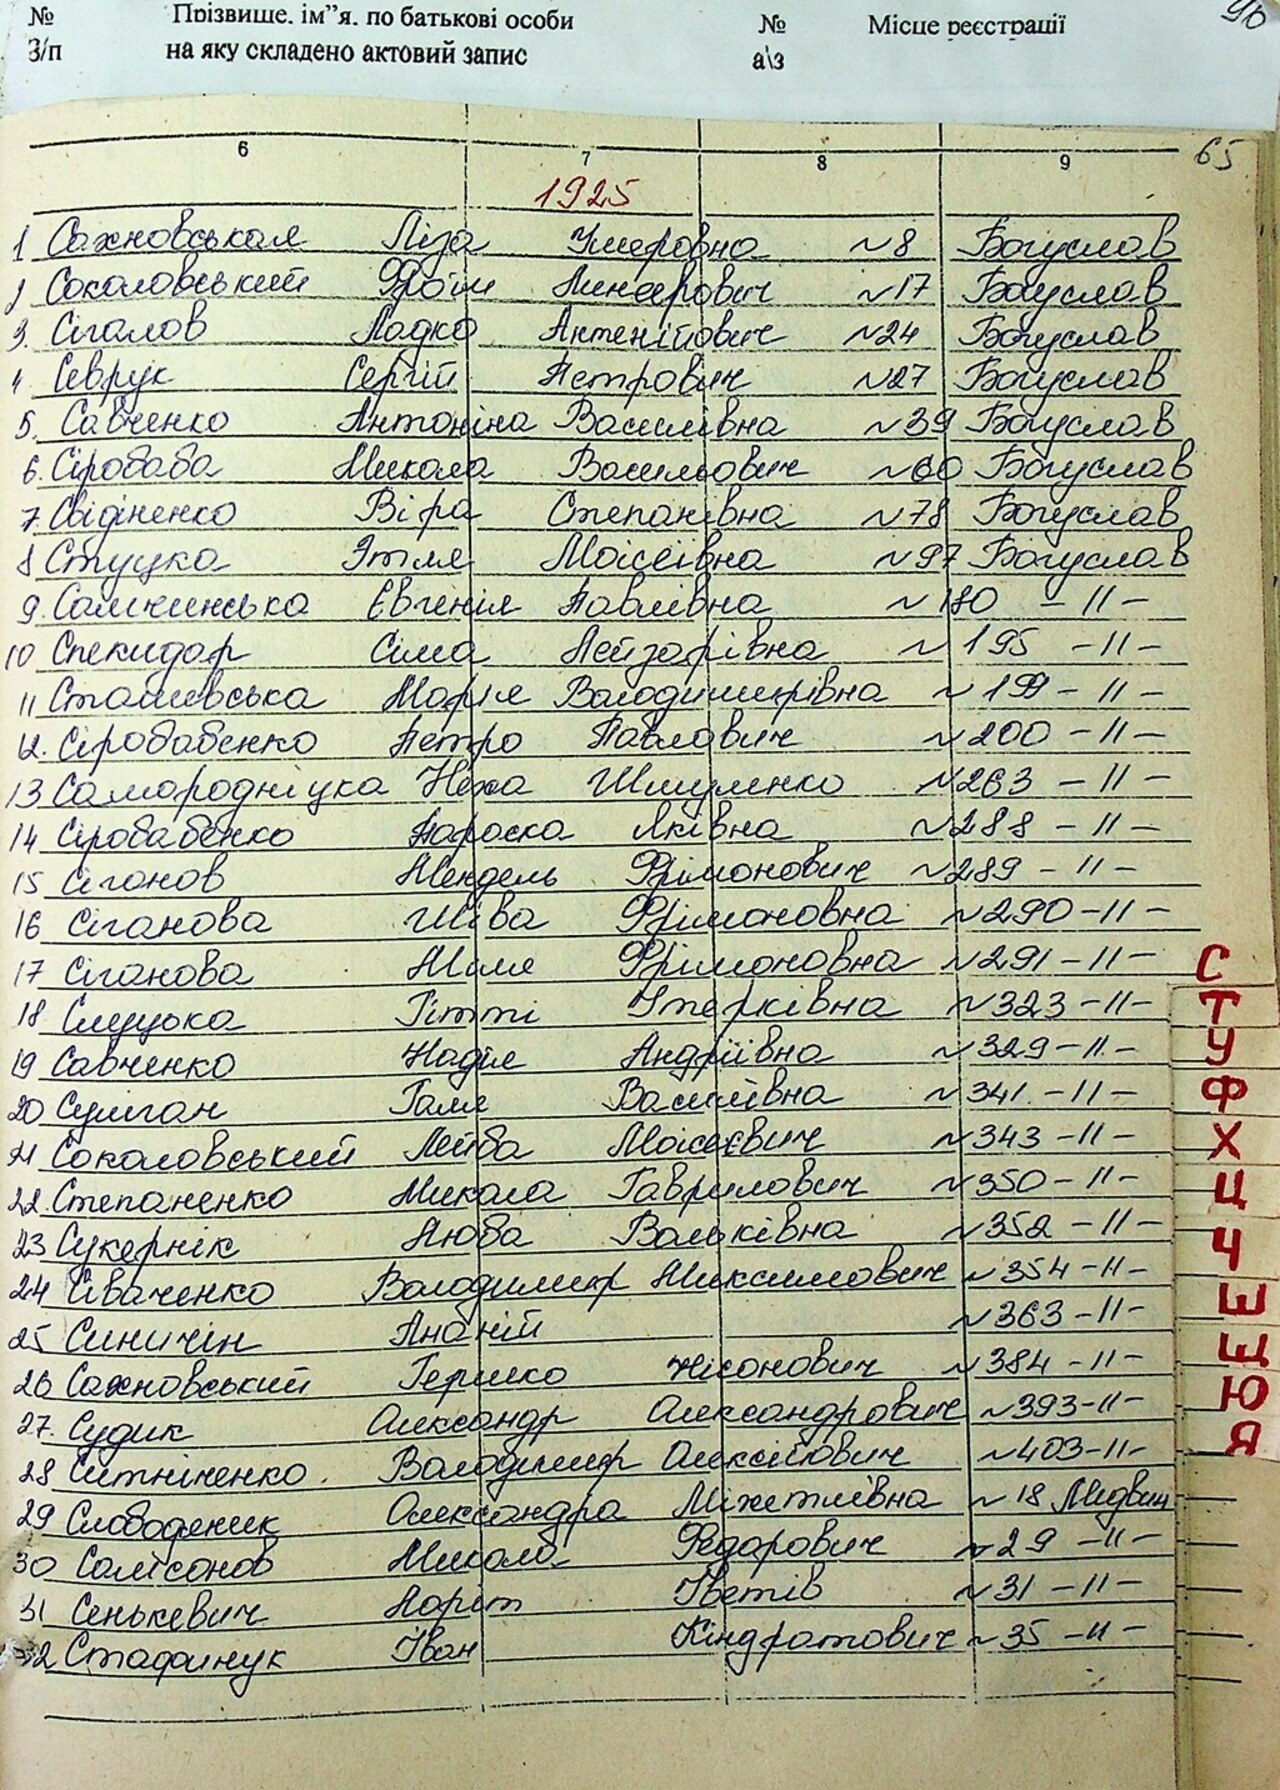 № Прізвище, ім”я, по батькові особи № Місце реєстрації 90
З/п на яку складено актовий запис а\з
65
6 7 8 9
1925
1 Сахновськая Ліза Умеровна №8 Богуслав
2 Соколовський Фроїм №17 Богуслав
3. Сігалов Ладко Антенійович №24 Богуслав
4 Севрук Сергій Петрович №27 Богуслав
5. Савченко Антоніна Василівна №39 Богуслав
6. Сіробаба Микола Васильович №60 Богуслав
7. Свідіненко Віра Степанівна №78 Богуслав
8 Стуцка Этля Мойсеївна №97 Богуслав
9. Євгенія Павлівна №180 -11-
10 Спекидар Сіма Лейзарівна №195 -11-
11 Сташевська Марія Володимирівна №199 -11-
12. Сіробабенко Петро Павлович №200 -11-
13 Самородніцка Неха Шмуленко №263 -11-
14 Сіробабенко Параска Яківна №288 -11-
15 Сіганов Мендель Фрімонович №289 -11-
16 Сіганова Шіва Фрімоновна №290 -11-
17 Сіганова Маля Фрімоновна №291 -11-
18 Слуцька Гітті №323 -11-
19 Савченко Надія Андріївна №329 -11-
20 Сулиган Галя Василівна №341 -11-
21 Соколовський Лейба Моісеєвич №343 -11-
22. Степаненко Микола Гаврилович №350 -11-
23 Сукернік Люба Вольківна №352 -11-
24 Сіваченко Володимир Максимович №354 -11-
25 Синичін Ананій №363 -11-
26 Сахновський Гершко Нісонович №384 -11-
27. Судик Олександр Олександрович №393 -11-
28 Ситніченко Володимир Олексійович №403 -11-
29 Слободеник Олександра №18 Медвин
30 Самсонов Микола Федорович №29 -11-
31 Сенькевич №31 -11-
32 Іван Кіндратович №35 -11-
С
Т
У
Ф
Х
Ц
Ч
Ш
Щ
Ю
Я